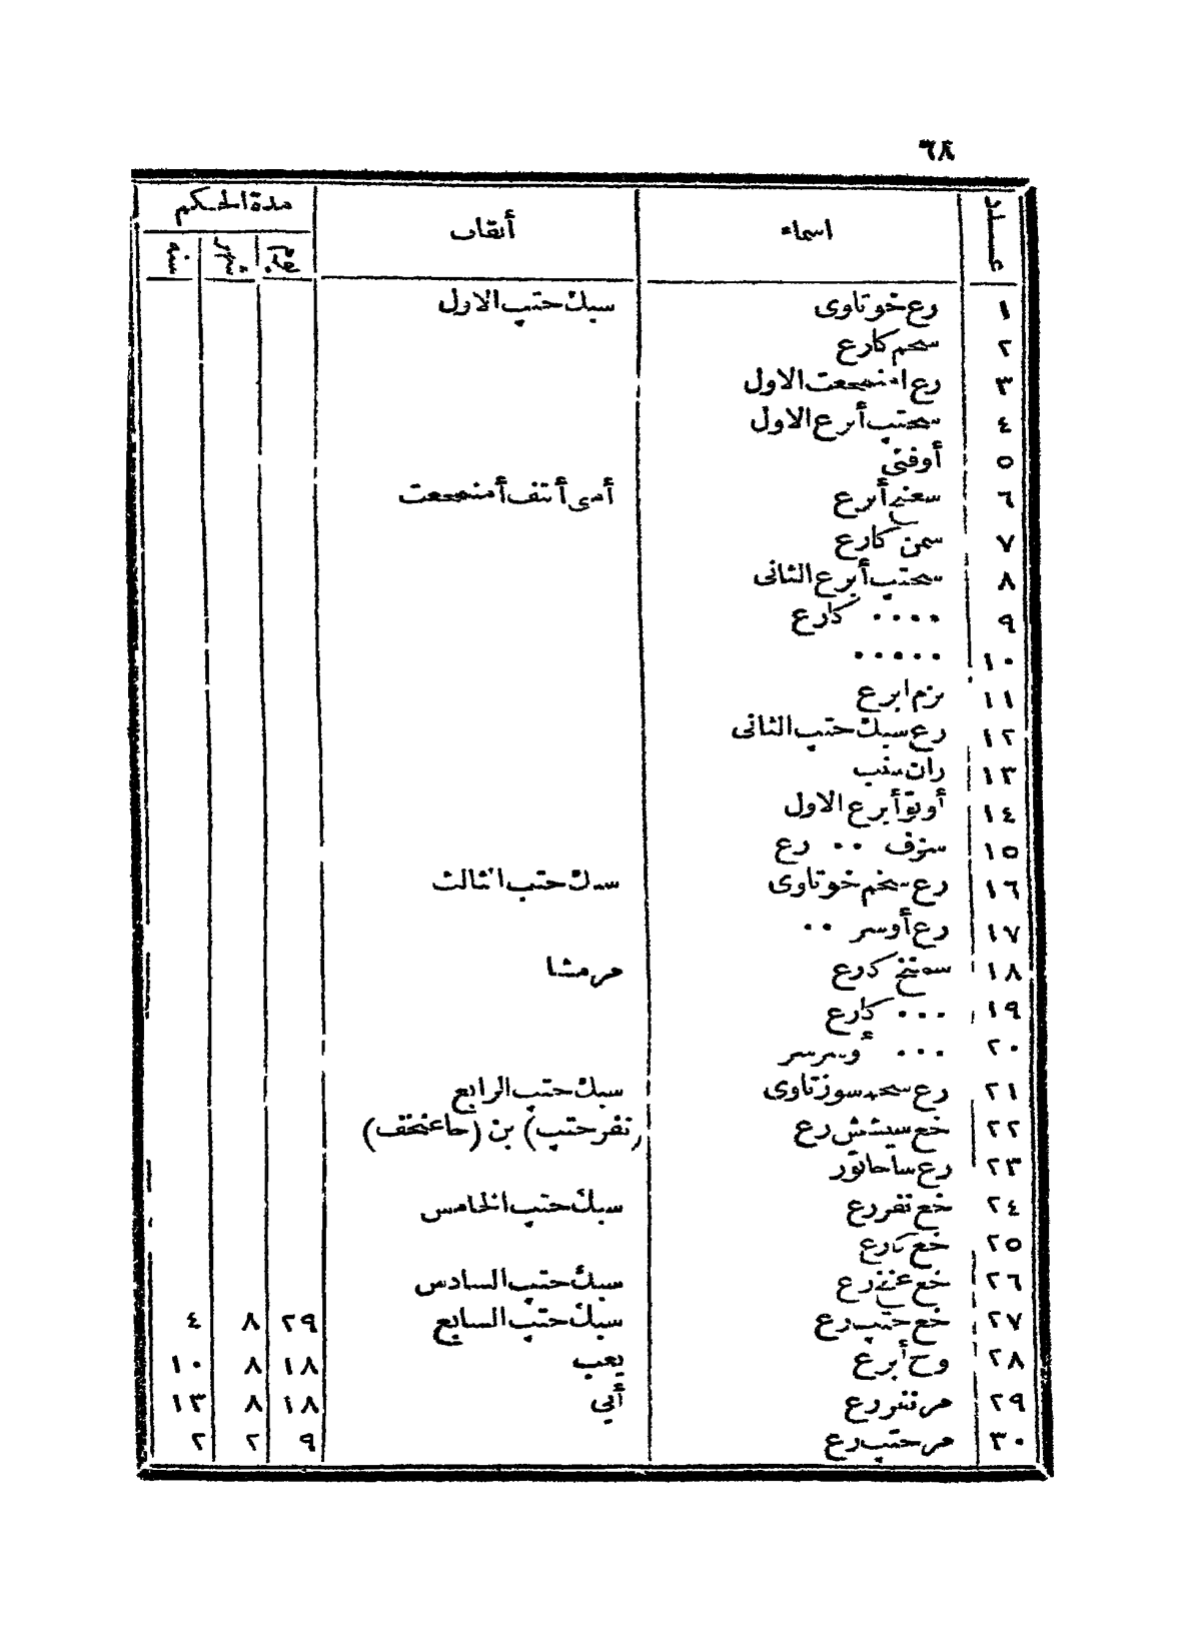 ٦٨
عدد اسماء ألقاب مدة الحكم
يوم شهر سنه
١ رع خوتاوى سبك حتب الاول
٢ سحم كارع
٣ رع امنمحعت الاول
٤ سحتب أبرع الاول
٥ أوفنى
٦ سعنخ أبرع أمنى أنتف أمنمحعت
٧ سمن كارع
٨ سحتب أبرع الثانى
٩ ‏.... كارع
١٠ ‏.....
١١ نزم ابرع
١٢ رع سبك حتب الثانى
١٣ ران سنب
١٤ أوتو أبرع الاول
١٥ سزف .. رع
١٦ رع سخم خوتاوى سبك حتب الثالث
١٧ رع أوسر ..
١٨ سمنخ كارع مرمشا
١٩ ‏... كارع
٢٠ ‏... أوسرسر
٢١ رع سخم سوزتاوى سبك حتب الرابع
٢٢ خع سيشش رع (نفر حتب) بن (حاعنخف)
٢٣ رع ساحاتور
٢٤ خع نفر رع سبك حتب الخامس
٢٥ خع كارع
٢٦ خع عنخ رع سبك حتب السادس
٢٧ خع حتب رع سبك حتب السابع ٢٩ ٨ ٤
٢٨ وح أبرع يعب ١٨ ٨ ١٠
٢٩ مر نفر رع أبي ١٨ ٨ ١٣
٣٠ مر حتب رع ٩ ٢ ٢